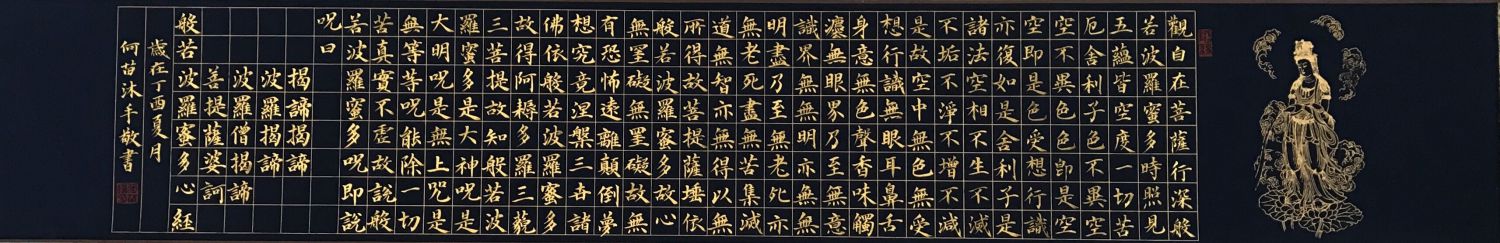 觀自在菩薩行深般
若波羅蜜多時照見
五蘊皆空度一切苦
厄舍利子色不異空
空不異色色即是空
空即是色受想行識
亦復如是舍利子是
諸法空相不生不滅
不垢不淨不增不減
是故空中無色無受
想行識無眼耳鼻舌
身意無色聲香味觸
灋無眼界乃至無意
識界無無明亦無無
明盡乃至無老死亦
無老死盡無苦集滅
道無智亦無得以無
所得故菩提薩埵依
般若波羅蜜多故心
無罣礙無罣礙故無
有恐怖遠離顛倒夢
想究竟涅槃三世諸
佛依般若波羅蜜多
故得阿耨多羅三藐
三菩提故知般若波
羅蜜多是大神呪是
大明呪是無上咒是
無等等呪能除一切
苦真實不虛故說般
若波羅蜜多呪即說
呪曰
揭諦揭諦
波羅揭諦
波羅僧揭諦
菩提薩婆訶
般若波羅蜜多心經
歲在丁酉夏月
何苗沐手敬書